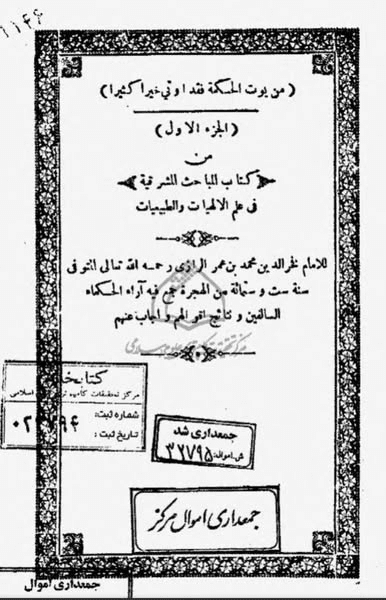 ١١٤٤
(من يوت الحكمة فقد اوتي خيرا كثيرا)
(الجزء الاول)
من
كتاب المباحث المشرقية
في علم الالهيات والطبيعيات
للامام فخر الدين محمد بن عمر الرازي رحمه الله تعالى المتوفى
سنة ست وستمائة من الهجرة جمع فيه آراء الحكماء
السالفين و نتائج اقوالهم و اجاب عنهم
کتابخا
مرکز تحقیقات کامپیوتر اسلامی
شماره ثبت:
تاریخ ثبت:
جمعداری شد
ش‌اموال: ۳۲۷۹۵
جمعداری اموال مرکز
جمعداری اموال